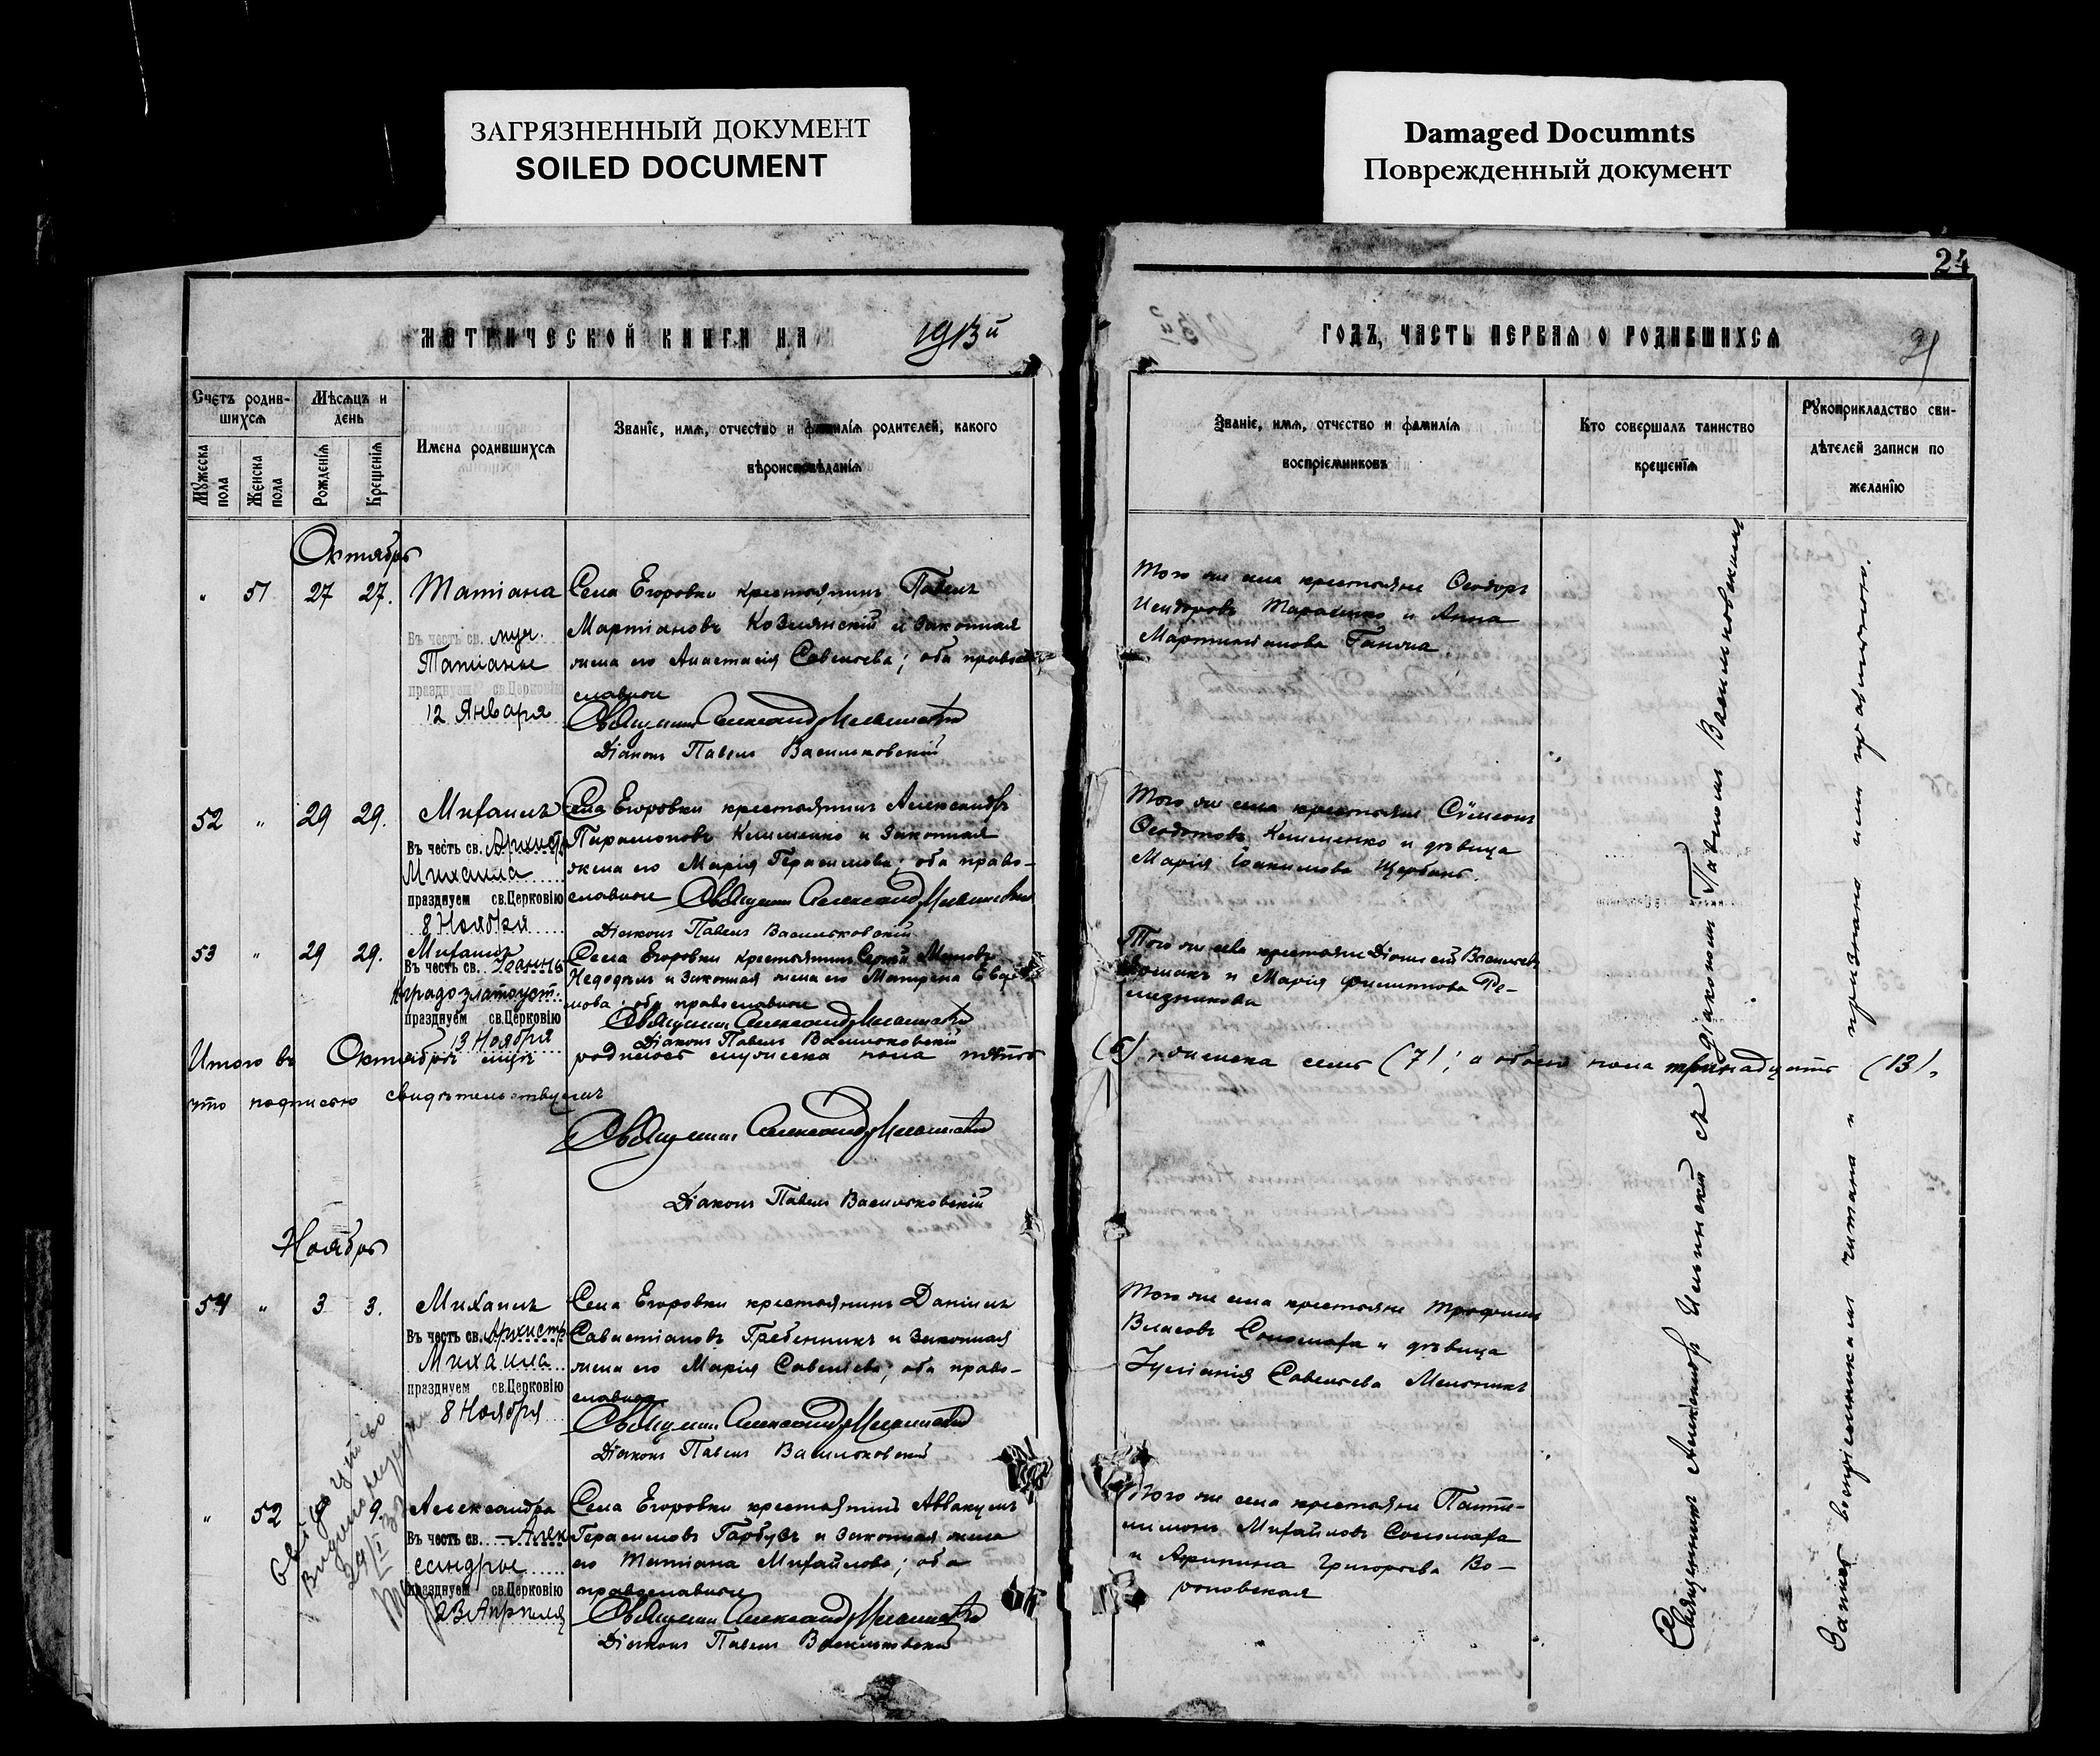 ЗАГРЯЗНЕННЫЙ ДОКУМЕНТ
SOILED DOCUMENT
Damaged Documnts
Поврежденный документ
24
МЕТРИЧЕСКОЙ КНИГИ НА 1913й
ГОДЪ, ЧАСТЬ ПЕРВАЯ О РОДИВШИХСЯ
Счетъ родив-
шихся
Мѣсяцъ и
день
Мужеска
пола
Женска
пола
Рожденія
Крещенія
Имена родившихся
Званіе, имя, отчество и фамилія родителей, какого
вѣроисповѣданія
Званіе, имя, отчество и фамилія
воспріемниковъ
Кто совершалъ таинство
крещенія
Рукоприкладство сви-
дѣтелей записи по
желанію
Октябрь
" 51 27 27. Татіана
Въ честь св. муч.
Татіаны
празднуем св.Церковію
12 Января
Села Егоровки крестьянинъ Павелъ
Мартіановъ Козлянскій и законная
жена его Анастасія Савельева; оба право-
славные
Священникъ Александръ
Діаконъ Павелъ Васильковскій
Того же села крестьяне Ѳеодоръ
Исидоровъ Тарасенко и Анна
Мартиніанова
52 " 29 29. Михаилъ
Въ честь св. Архистр.
Михаила
празднуем св.Церковію
8 Ноября
Села Егоровки крестьянинъ Александръ
Парамоновъ Клименко и законная
жена его Марія Герасимова; оба право-
славные Священникъ Александръ
Діаконъ Павелъ Васильковскій
Того же села крестьяне Сѵмеонъ
Ѳеодотовъ Клименко и дѣвица
Марія Іоакимова Щербань.
53 " 29 29. Михаилъ
Въ честь св. Іоанна
златоуст.
празднуем св.Церковію
13 Ноября
Села Егоровки крестьянинъ Сергій
и законная жена его Матрена
оба православные
Священникъ Александръ
Діаконъ Павелъ Васильковскій
Того же села крестьяне Діонисій Васильевъ
и Марія Филиппова Ре-
Итого въ Октябрѣ мцѣ родилось мужеска пола шесть
(6), женска семь (7); а обоего пола тринадцать (13),
что подписью свидѣтельствуемъ
Священникъ Александръ
Діаконъ Павелъ Васильковскій
Ноябрь
54 " 3 3. Михаилъ
Въ честь св. Архистр.
Михаила
празднуем св.Церковію
8 Ноября
Села Егоровки крестьянинъ Даніилъ
Савастіановъ Гребенникъ и законная
жена его Марія Савельева; оба право-
славные
Священникъ Александръ
Діаконъ Павелъ Васильковскій
Того же села крестьяне Трофимъ
Власовъ и дѣвица
Іуліанія Савельева Мельникъ
" 52 9. Александра
Въ честь св. Алек
сандры
празднуем св.Церковію
23 Апрѣля
Села Егоровки крестьянинъ Аввакумъ
Герасимовъ Гарбузъ и законная жена
его Татіана Михайлова; оба
православные
Священникъ Александръ
Діаконъ Павелъ Васильковскій
Того же села крестьяне Панте-
лимонъ Михайловъ
и Агрипина Григорьева Во-
роновская
Священникъ Александръ съ діакономъ Павломъ Васильковскимъ
Запись воспріемникамъ читана и признана ими правильною.